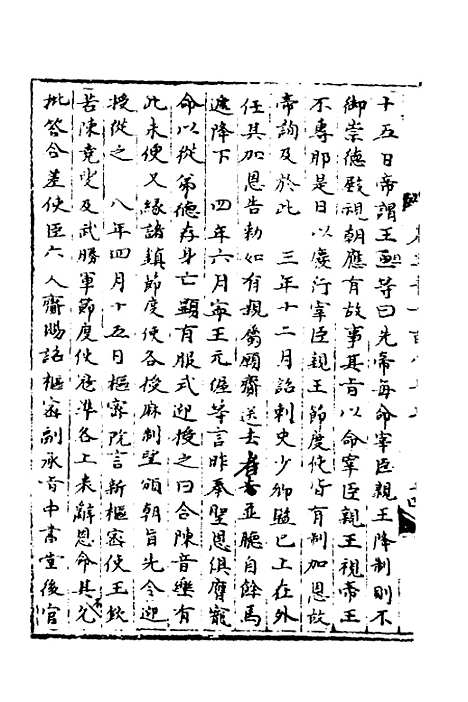 十五日帝謂王旦等曰先帝每命宰臣親王降制則不
御崇德殿視朝應有故事耳旨以命宰臣親王視帝王
不專耶是日以慶行宰臣親王節度使皆有制加恩故
帝詢及於此　三年十二月詔刺史少卿監已上在外
任其加恩告勑如有親舊願齎送去者　並聽自餘馬
遞降下　四年六月　王元偓等言昨奉聖恩俱膺寵
命以從弟德存身亡顯有服式迎授之日合陳音樂有
此未便又緣諸鎮節度使各授麻制望頒朝旨先令迎
授從之　八年四月十五日樞密院言新樞密使王欽
若陳堯叟及武勝軍節度使寇準各上表辭恩命其允
批答合差使臣六人齎賜詔樞密副承旨中書堂後官